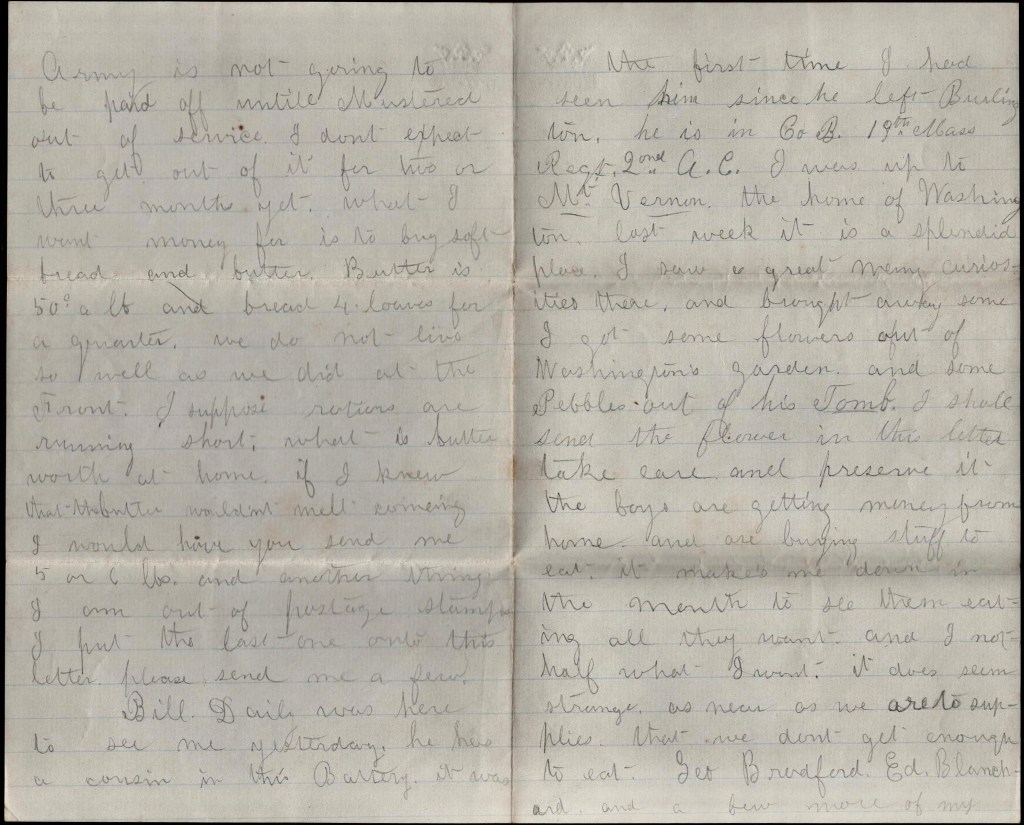 Army is not going to
be paid off untile Mustered
out of service. I dont expect
to get out of it for two or
three month yet. what I
want money for is to buy soft
bread and butter. Butter is
50c a lb and bread 4 loaves for
a quarter. we do not live
so well as we did at the
Front. I suppose rations are
running short; what is butter
worth at home. if I knew
that the butter wouldnt melt comeing
I would have you send me
5 or 6 lbs. and another thing
I am out of postage stamps
I put the last one onto this
letter. please send me a few.
Bill. Daily was here
to see me yesterday. he has
a cousin in this Battery. it was
the first time I had
seen him since he left Burling
ton. he is in Co B. 19th Mass
Regt. 2nd A. C. I was up to
Mt. Vernon. the home of Washing
ton. last week it is a splendid
place. I saw a great meny curios-
ities there. and brought away some
I got some flowers out of
Washington's garden. and some
Pebbles out of his Tomb. I shall
send the flower in this letter
take care and preserve it
the boys are getting money from
home. and are buying stuff to
eat. it makes me down in
the mouth to see them eat-
ing all they want. and I not
half what I want. it does seem
strange. as near as we are to sup-
plies. that we dont get enough
to eat. Geo Bradford. Ed. Blanch-
ard. and a few more of my